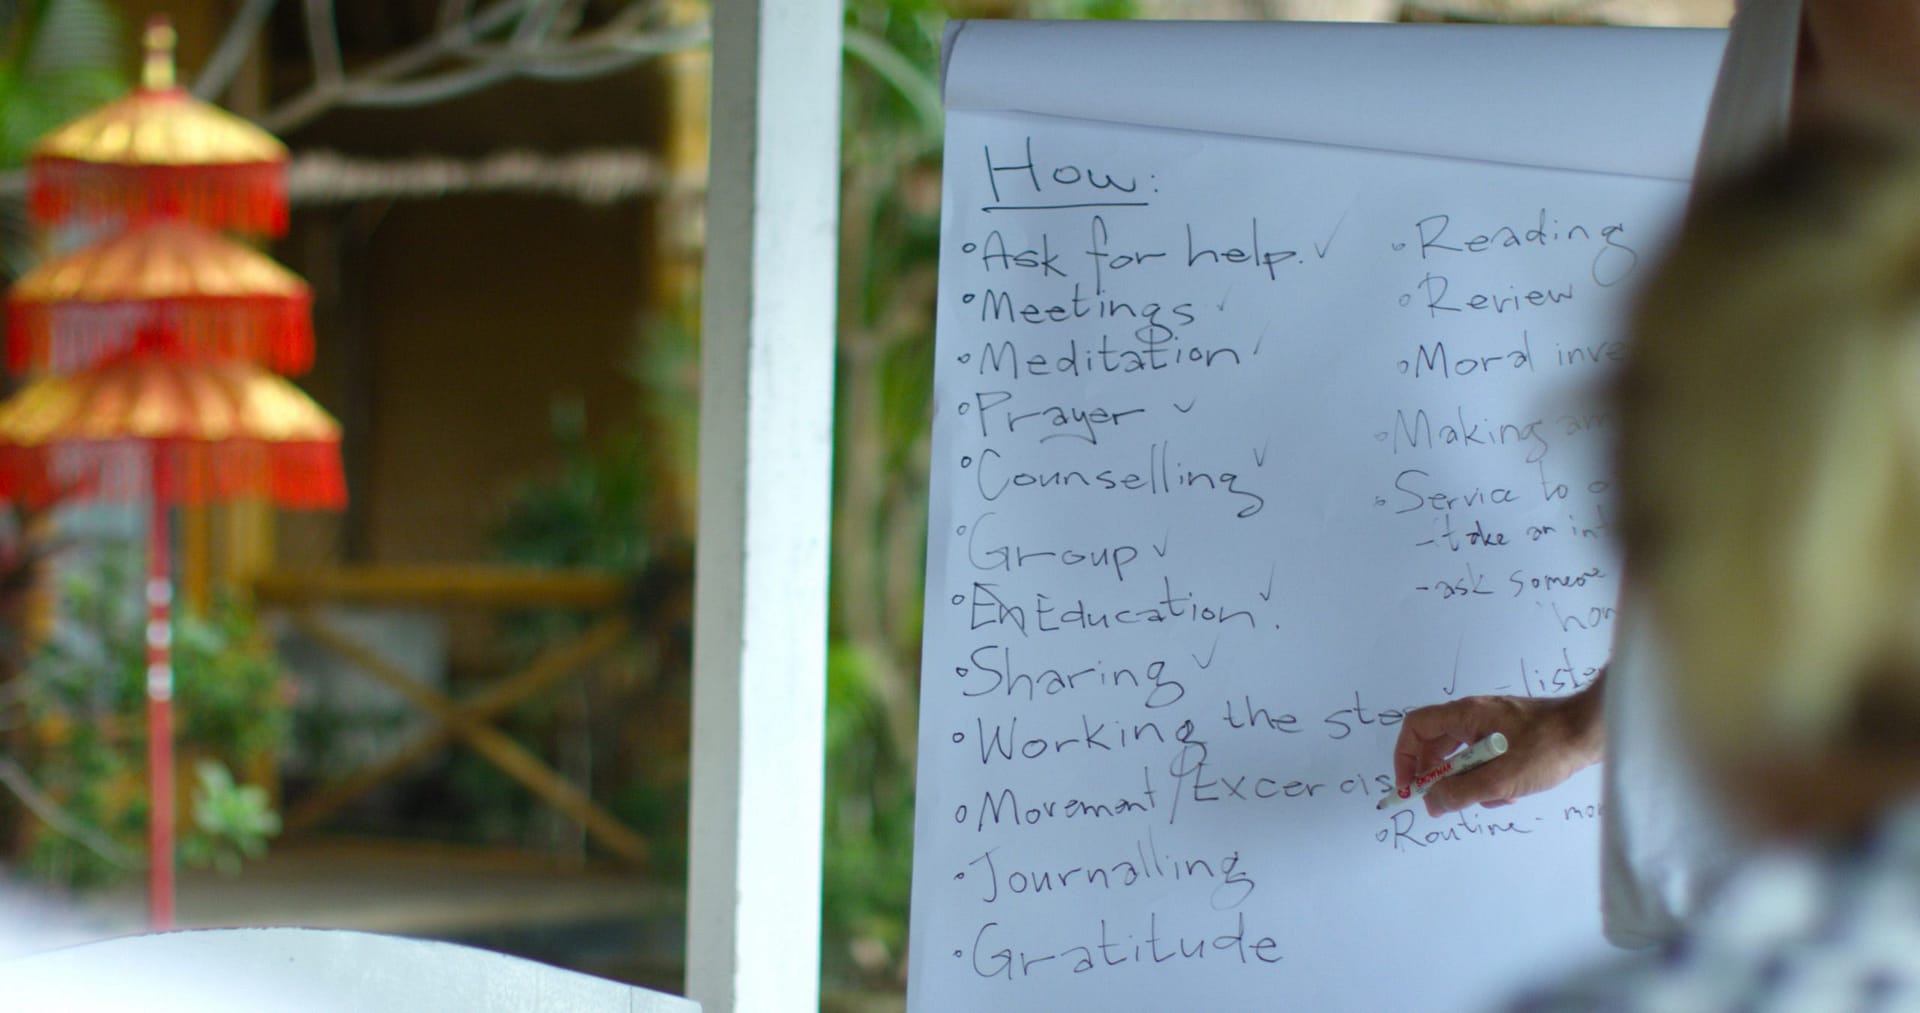 How:
°Ask for help. ✓
°Meetings ✓
°Meditation ✓
°Prayer ✓
°Counselling ✓
°Group ✓
°En Education. ✓
°Sharing ✓
°Working the ✓
°Movement/Excercis
°Journalling
°Gratitude
°Reading
°Review
°Moral inve
°Making am
°Service to o
-take an int
-ask someone
hon
-liste
°Routine - mo
SNOWMAN